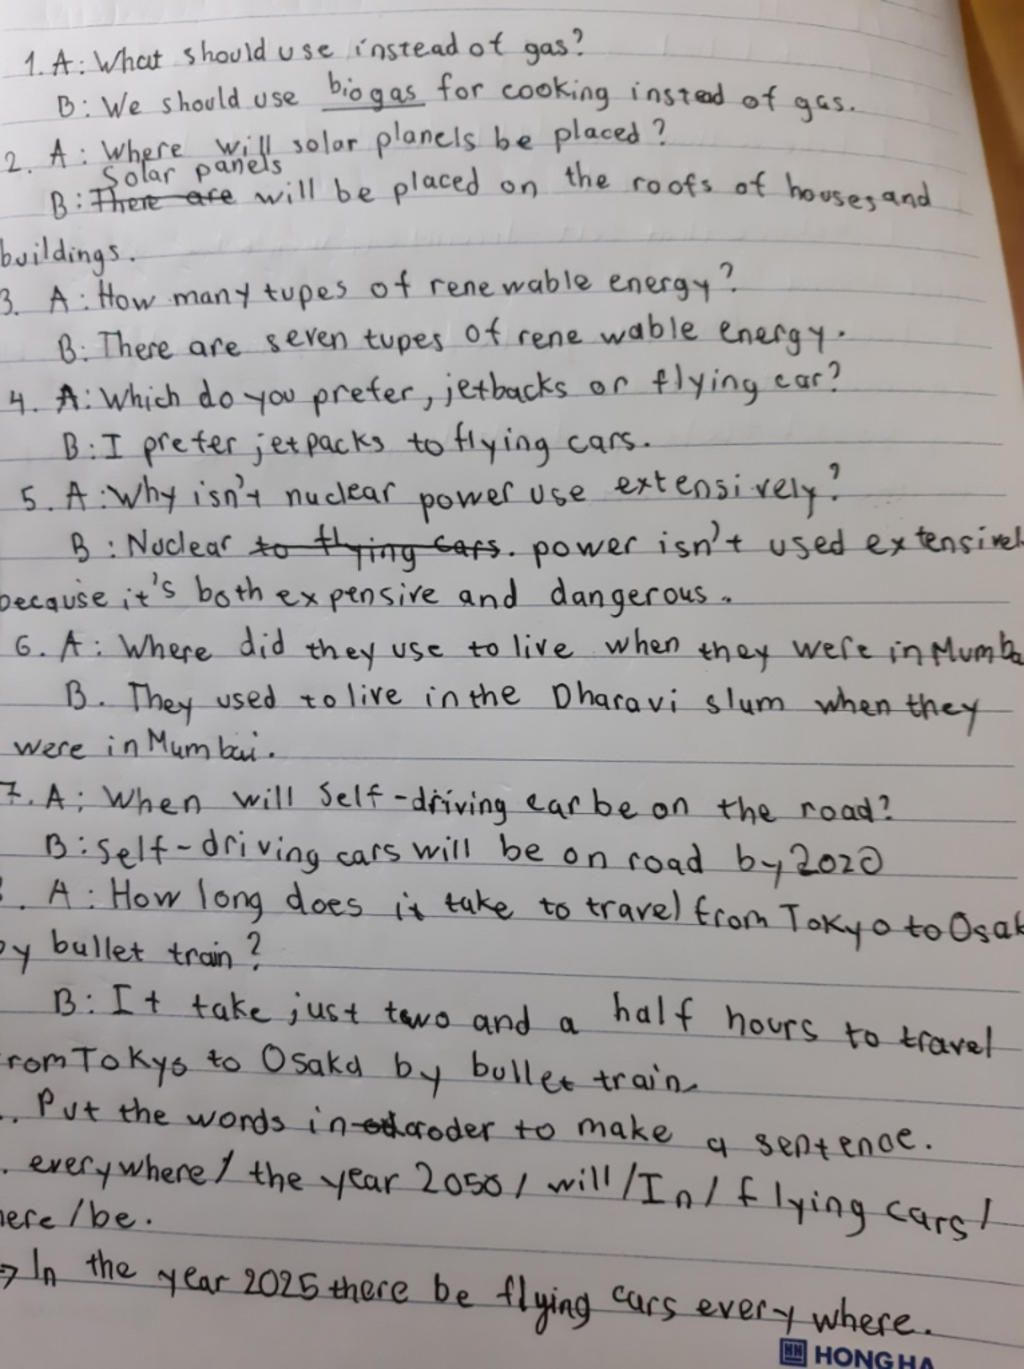 1. A: What should use instead of gas?
B: We should use biogas for cooking instead of gas.
2. A: Where will solar planels be placed?
Solar panels
B: There are will be placed on the roofs of houses and
buildings.
3. A: How many tupes of renewable energy?
B: There are seven tupes of rene wable energy.
4. A: Which do you prefer, jetbacks or flying car?
B: I prefer jetpacks to flying cars.
5. A: Why isn't nuclear power use extensively?
B: Nuclear to flying cars. power isn't used extensivel
because it's both expensive and dangerous.
6. A: Where did they use to live when they were in Mumba
B. They used to live in the Dharavi slum when they
were in Mumbai.
7. A: When will Self-driving car be on the road?
B: Self-driving cars will be on road by 2020
. A: How long does it take to travel from Tokyo to Osak
by bullet train?
B: It take just two and a half hours to travel
rom Tokyo to Osaka by bullet train
.. Put the words in oroder to make a sentence.
. everywhere / the year 2050 / will / In / flying cars /
here / be.
→ In the year 2025 there be flying cars every where.
HONG HA